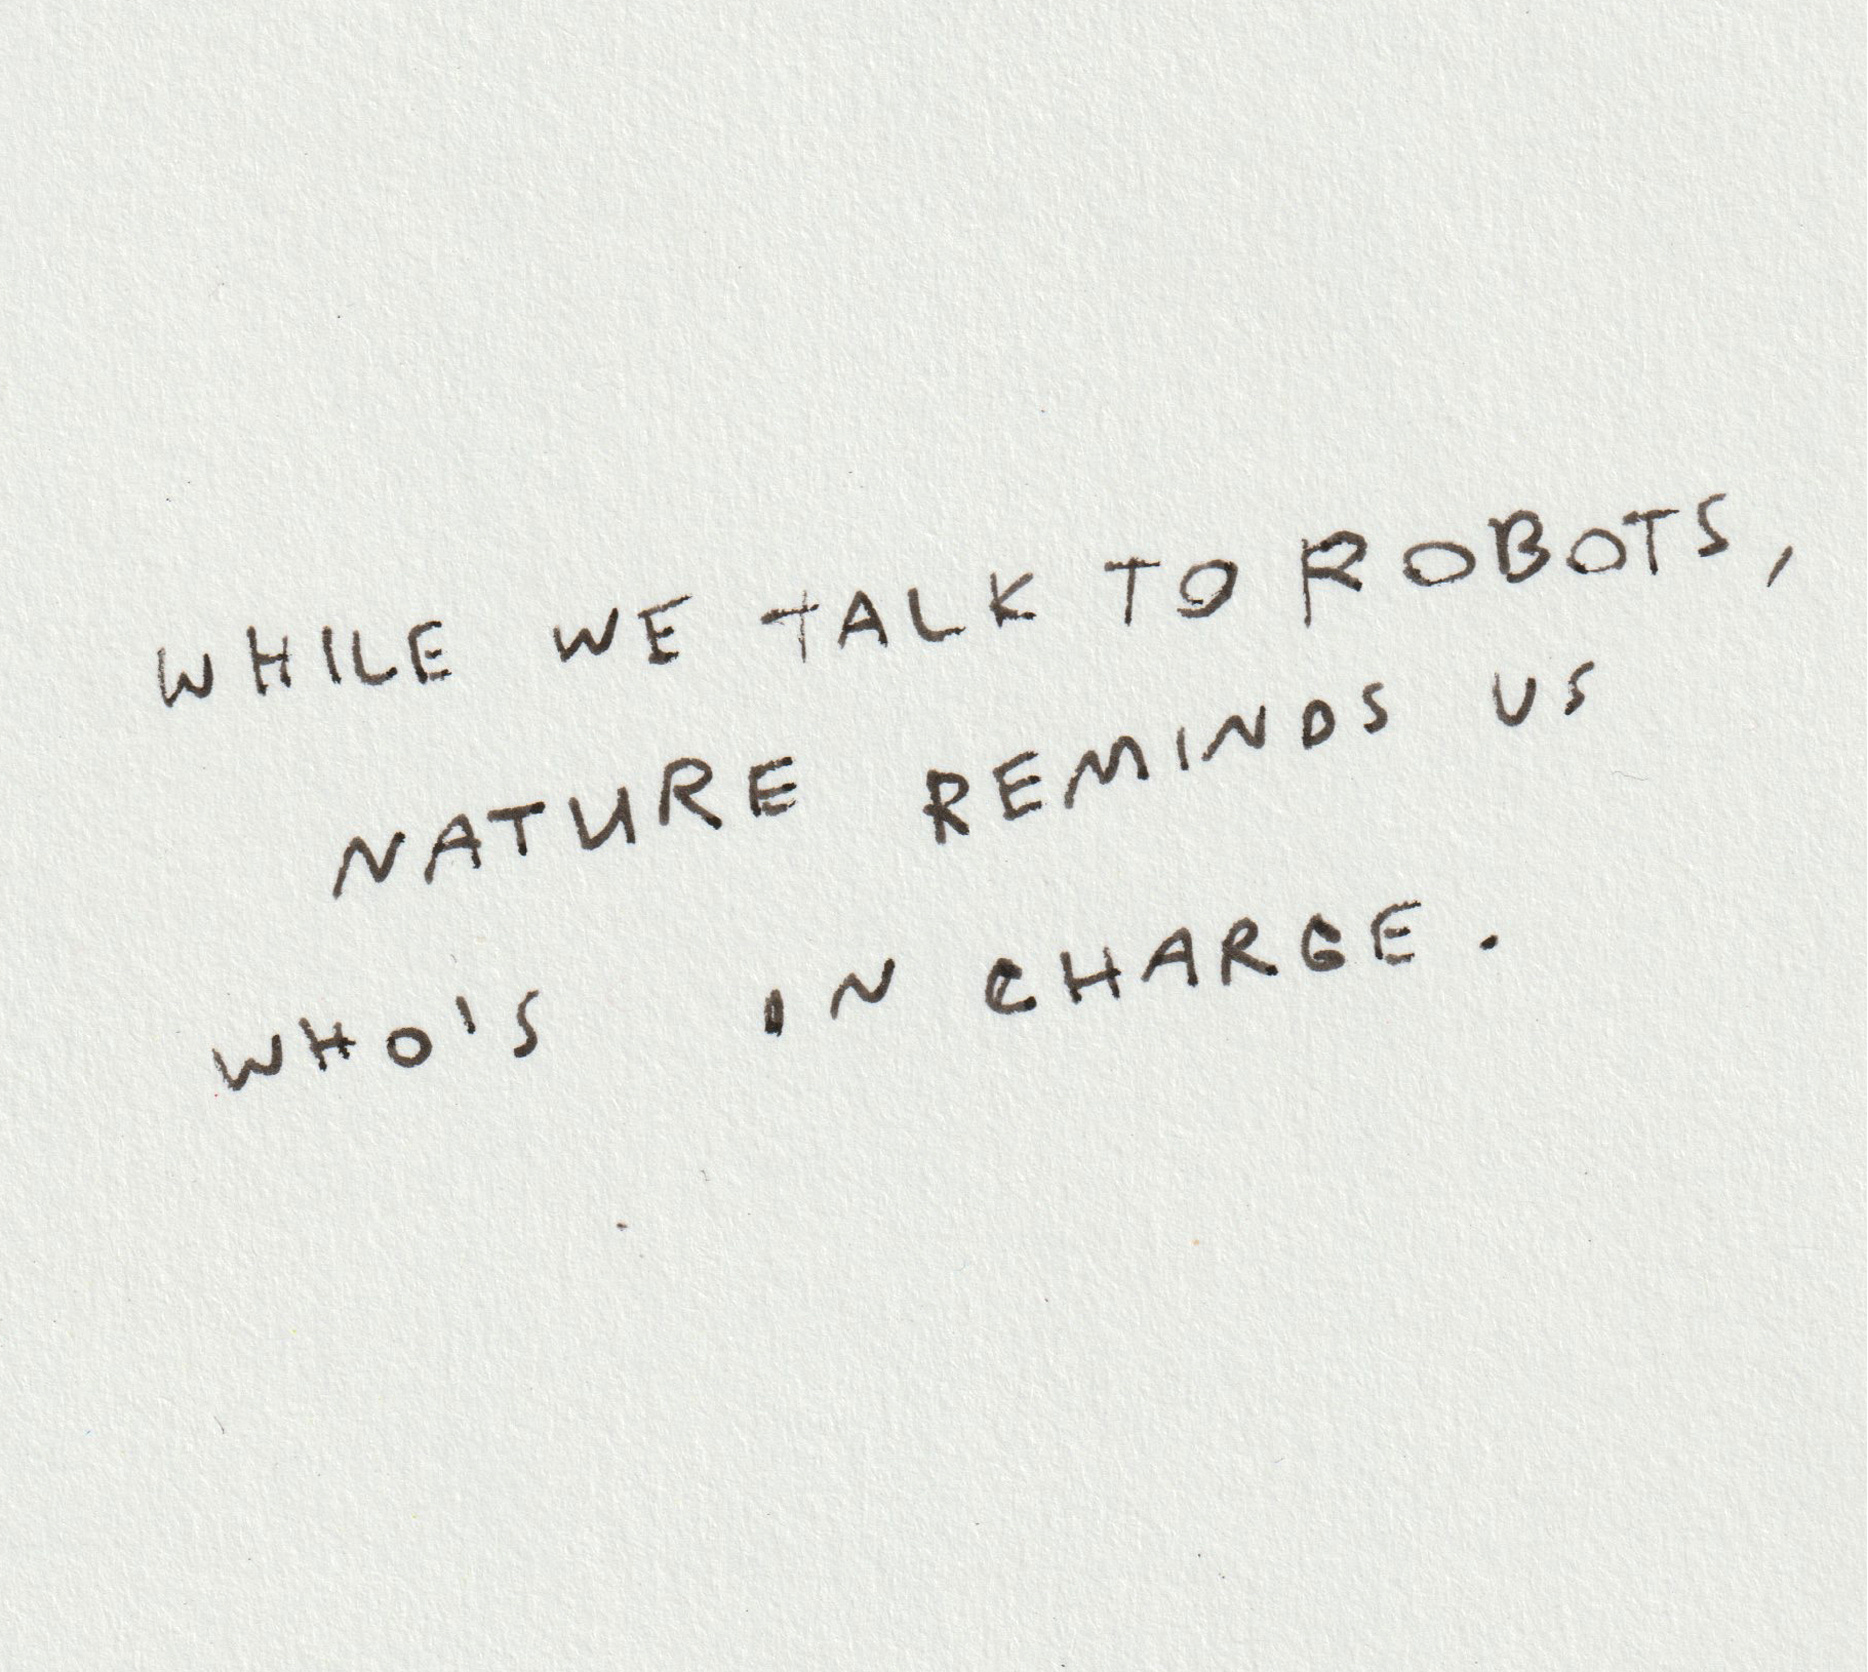 WHILE WE TALK TO ROBOTS,
NATURE REMINDS US
WHO'S IN CHARGE.